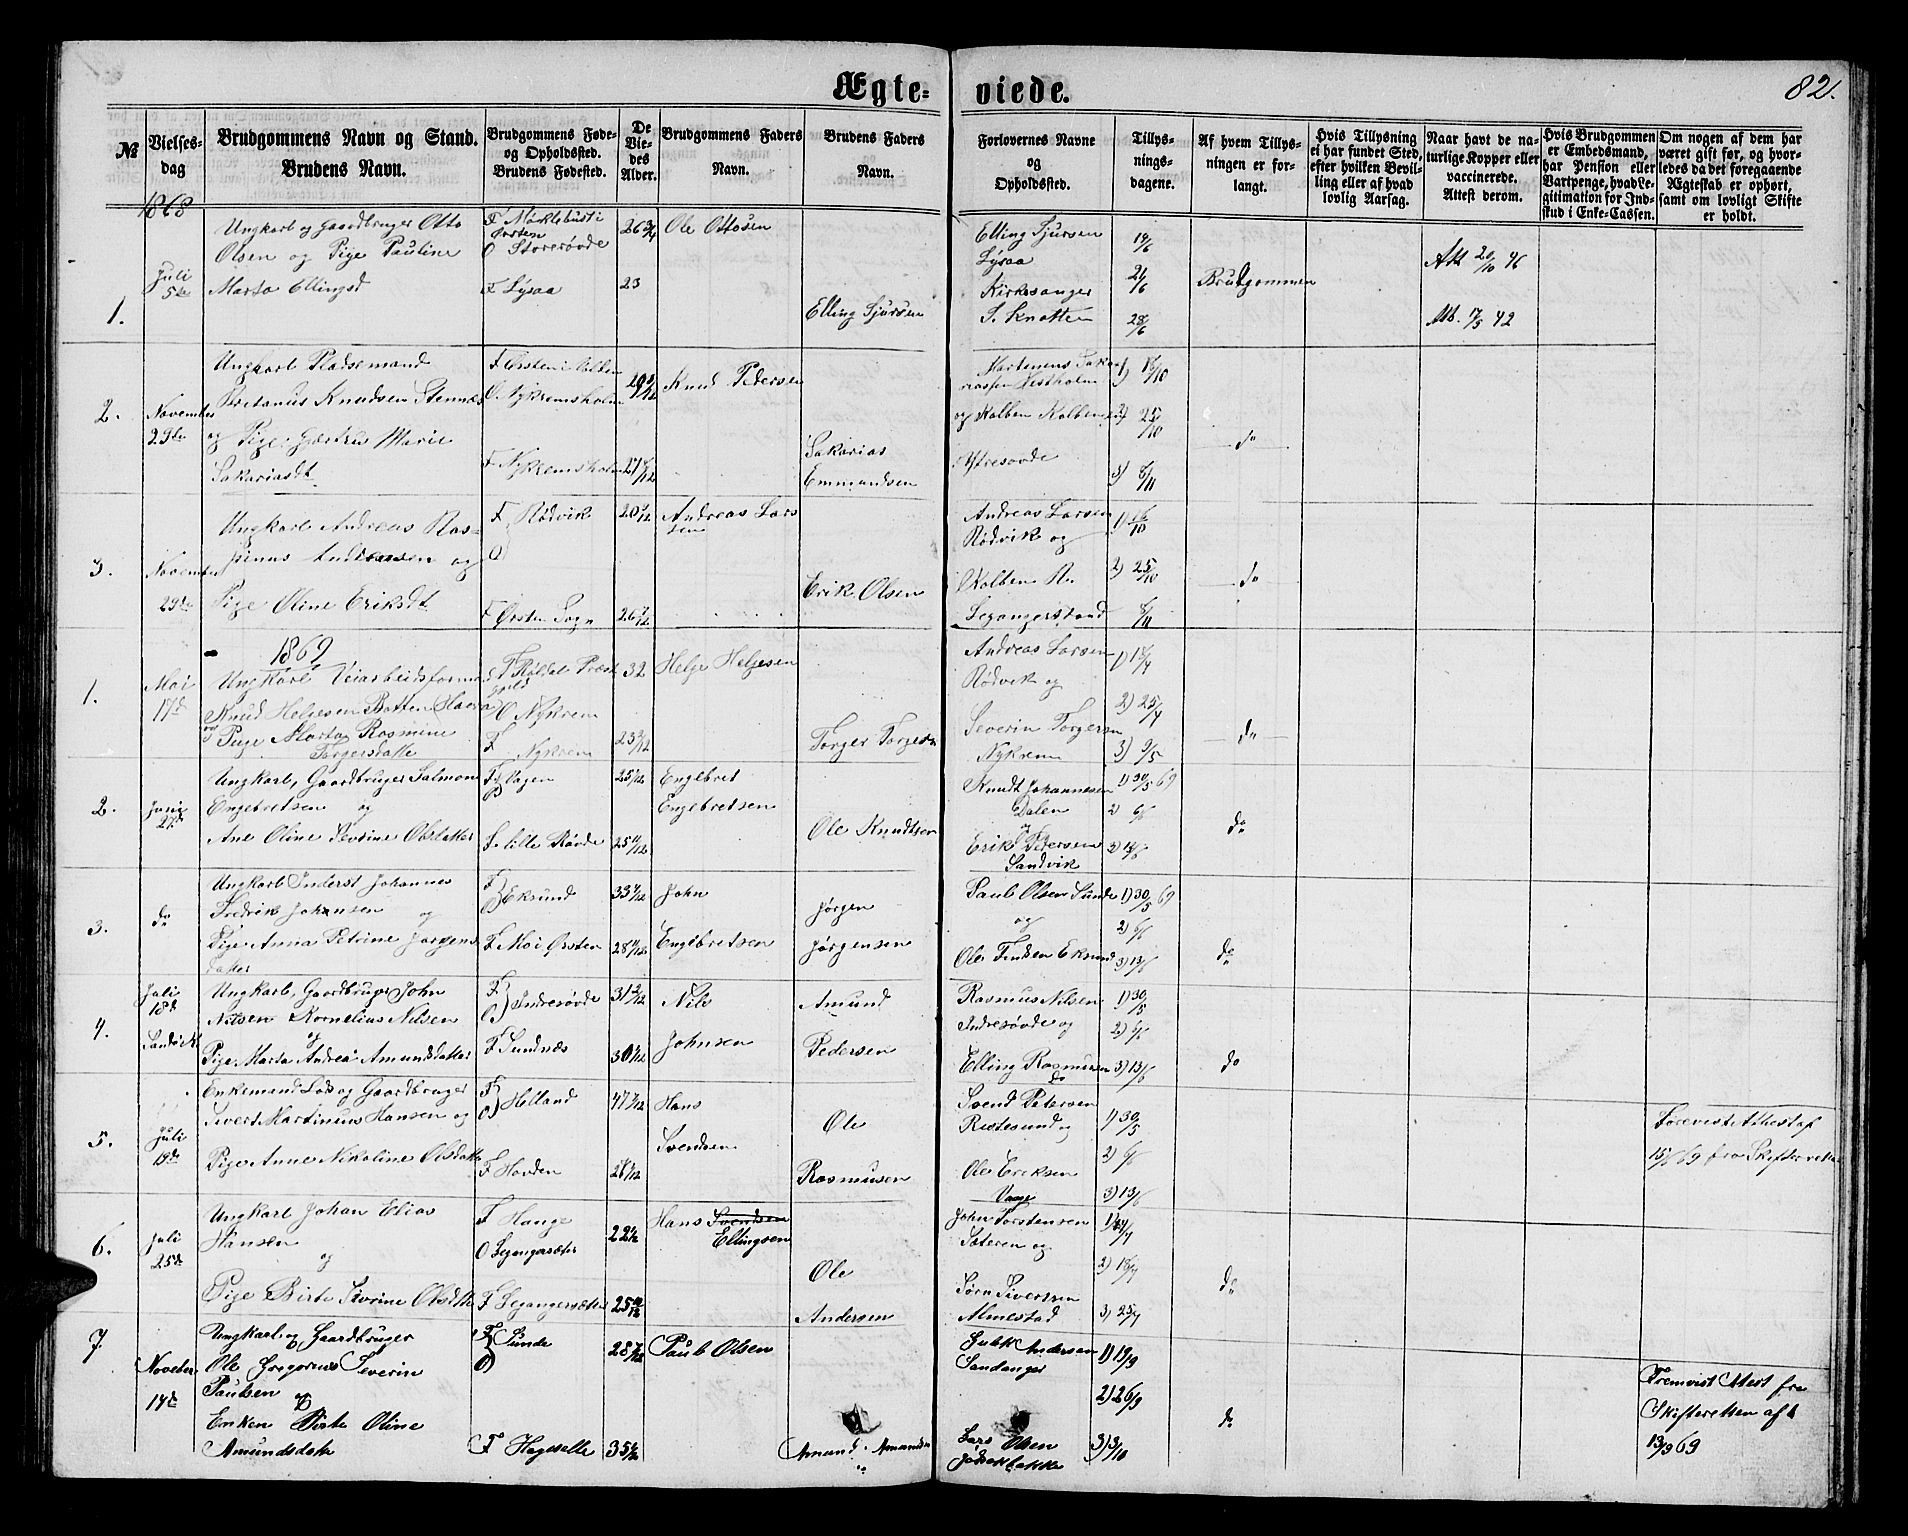 Ægte- viede.
82.
№
Vielses-
dag
Brudgommens Navn og Stand.
Brudens Navn.
Brudgommens Føde-
og Opholdssted.
Brudens Fødested.
De
Vie-
des
Alder.
Brudgommens Faders
Navn.
Brudens Faders
Navn.
Forlovernes Navne
og
Opholdsted.
Tillys-
nings-
dagene.
Af hvem Tillys-
ningen er for-
langt.
Hvis Tillysning
ei har fundet Sted,
efter hvilken Bevil-
ling eller af hvad
lovlig Aarsag.
Naar havt de na-
turlige Kopper eller
vaccinerede.
Attest derom.
Hvis Brudgommen
er Embedsmand,
har Pension eller
Vartpenge, hvad Le-
gitimation for Ind-
skud i Enke-Cassen.
Om nogen af dem har
været gift før, og hvor-
ledes da det foregaaende
Ægteskab er ophørt,
samt om lovligt Skifte
er holdt.
1868
1.
Juli
5te
Ungkarl og Gaardbruger Otto
Olsen og Pige Pauline
Marta Ellingsd
F Møklebust i
Ørsten
O Storerøvde
F Lysaa
26 3/4
23
Ole Ottosen
Elling Sjursen
Elling Sjursen
Lysaa
Kirkesanger
S. Knotten
14/6
21/6
28/6
Brudgommen
Att 20/10 46
Att. 17/5 42
2.
November
29de
Ungkarl Pladsemand
Knudsen Stennæs
og Pige
Marie
Sakariasdt
F Ørsten i
O Nykremsholm
F Nykremsholm
Knud Pedersen
Sakarias
Emmundsen
Vestholm
og Kolben Kolbensen
Ytresovde
1) 18/10
2) 25/10
3) 8/11
do
3.
November
29de
Ungkarl Andreas Ras-
sinus Andreasen og
Pige Oline Eriksdt
F Rødvik
O
F Ørsten Sogn
26 7/12
Andreas Lars
sen
Erik Olsen
Andreas Larsen
Rødvik og
Kolben R.
Leganger
1) 18/10
2) 25/10
8/11
do
1869
1.
Mai
17de
Ungkarl Veiarbeidsforma
Knud Helgesen Botten (Havra)
og
Pige Marta Rasmine
Torgersdatte
F Røldal Præst
gjeld
O Nykrem
F Nykrem
32
23 2/12
Helje Heljesen
Torger Torgers
Andreas Larsen
Rødvik og
Severin Torgersen
Nykrem
1) 18/4
2) 25/4
3) 9/5
do
2.
Juni
27de
Ungkarl, Gaardbruger Salmon
Engebretsen og
Ane Oline Olsdatter
F Vagen
O
F. Lille Røvde
25 11/12
Engebret
Engebretsen
Ole Knudtsen
Knudt Johannesen
Dalen
og
Erik Pedersen
Sandvik
1) 30/5 69
2 6/6
3) 13/6
do
3.
do
Ungkarl Inderst Johannes
Fredrik Johansen og
Pige Anna Petrine Jørgens
datter
F
O Eksund
F Moi Ørsten
33
28
John
Engebretsen
Jørgen
Jørgensen
Paul Olsen Sunde
og
Ole Eksund
1) 30/5 69
2) 6/6
3) 13/6
do
4.
Juli
18de
Ungkarl, Gaardbruger John
Nilsen Kornelius Nilsen
og
Pige Marta Andrea Amundsdatter
F
O Indresøvde
F Sundnæs
31 2/12
Nils
Johnsen
Amund
Pedersen
Rasmus Nilsen
Indresøvde og
Elling Rasmusen
do
1) 30/5
2) 6/6
3) 13/6
do
5.
Juli
18de
Enkemand Lods og Gaardbruger
Sivert Martinius Hansen og
Pige Anne Nikoline Olsdatte
F
O Helland
F Hovden
47
Hans
Svendsen
Ole
Rasmusen
Svend Petersen
Ristesund og
Ole Eriksen
Vaage
1) 30/5
2) 6/6
3) 13/6
Forevist Attest af
15/6 69 fra Skifteretten
6.
Juli
25de
Ungkarl Johan Elias
Hansen
og
Pige Birte Severine Olsdtte
F Hauge
O Legangersæter
F Legangersæter
25 10/12
Hans Svendsen
Ellingsen
Ole
Andersen
John Torstensen
Sæteren og
Sørn Siverssen
Almestad
2) 18/7
3) 25/7
do
7.
Novebr
14de
Ungkarl og Gaardbruger
Ole Gregorius Severin
Paulsen
og
Enken Birte Oline
Amundsdatr
F
O Sunde
F Hageselle
Paul Olsen
Amund Amundsn
Andersen
Sandanger
Lars Olsen
1) 19/9
2) 26/9
3) 3/10
do
Fremvist Attest fra
Skifteretten af
13/9 69